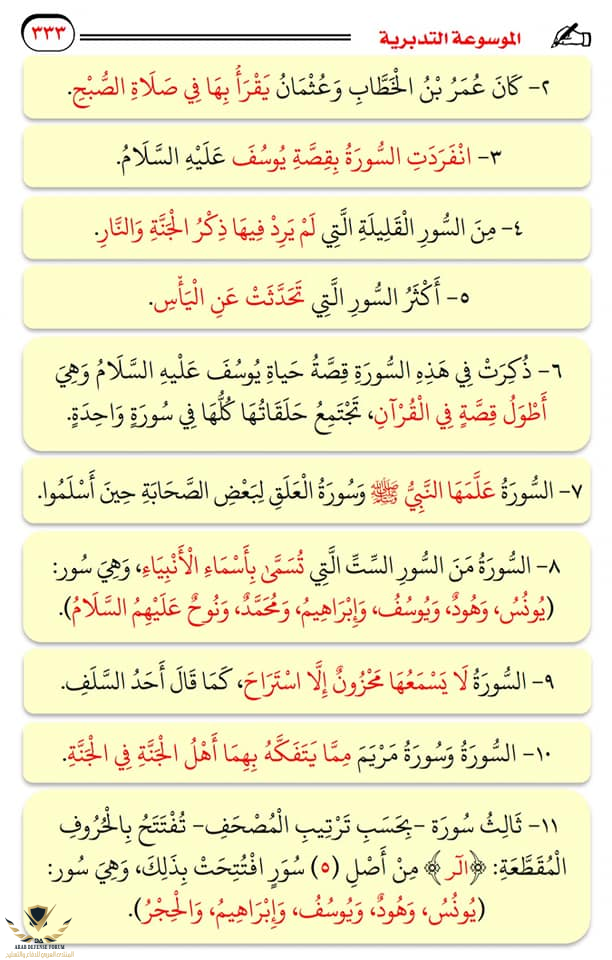 الموسوعة التدبرية
٣٣٣
٢- كَانَ عُمَرُ بْنُ الْخَطَّابِ وَعُثْمَانُ يَقْرَأُ بِهَا فِي صَلَاةِ الصُّبْحِ.
٣- انْفَرَدَتِ السُّورَةُ بِقِصَّةِ يُوسُفَ عَلَيْهِ السَّلَامُ.
٤- مِنَ السُّورِ الْقَلِيلَةِ الَّتِي لَمْ يَرِدْ فِيهَا ذِكْرُ الْجَنَّةِ وَالنَّارِ.
٥- أَكْثَرُ السُّورِ الَّتِي تَحَدَّثَتْ عَنِ الْيَأْسِ.
٦- ذُكِرَتْ فِي هَذِهِ السُّورَةِ قِصَّةُ حَيَاةِ يُوسُفَ عَلَيْهِ السَّلَامُ وَهِيَ
أَطْوَلُ قِصَّةٍ فِي الْقُرْآنِ، تَجْتَمِعُ حَلَقَاتُهَا كُلُّهَا فِي سُورَةٍ وَاحِدَةٍ.
٧- السُّورَةُ عَلَّمَهَا النَّبِيُّ ﷺ وَسُورَةُ الْعَلَقِ لِبَعْضِ الصَّحَابَةِ حِينَ أَسْلَمُوا.
٨- السُّورَةُ مَنَ السُّورِ السِّتِّ الَّتِي تُسَمَّىٰ بِأَسْمَاءِ الْأَنْبِيَاءِ، وَهِيَ سُور:
(يُونُسُ، وَهُودٌ، وَيُوسُفُ، وَإِبْرَاهِيمُ، وَمُحَمَّدٌ، وَنُوحٌ عَلَيْهِمُ السَّلَامُ).
٩- السُّورَةُ لَا يَسْمَعُهَا مَحْزُونٌ إِلَّا اسْتَرَاحَ، كَمَا قَالَ أَحَدُ السَّلَفِ.
١٠- السُّورَةُ وَسُورَةُ مَرْيَمَ مِمَّا يَتَفَكَّهُ بِهِمَا أَهْلُ الْجَنَّةِ فِي الْجَنَّةِ.
١١- ثَالِثُ سُورَة -بِحَسَبِ تَرْتِيبِ الْمُصْحَفِ- تُفْتَتَحُ بِالْحُرُوفِ
الْمُقَطَّعَةِ: ﴿الٓر﴾ مِنْ أَصْلِ (٥) سُوَرٍ افْتُتِحَتْ بِذَلِكَ، وَهِيَ سُور:
(يُونُسُ، وَهُودٌ، وَيُوسُفُ، وَإِبْرَاهِيمُ، وَالْحِجْرُ).
ARAB DEFENSE FORUM
المنتدى العربي للدفاع والتسليح